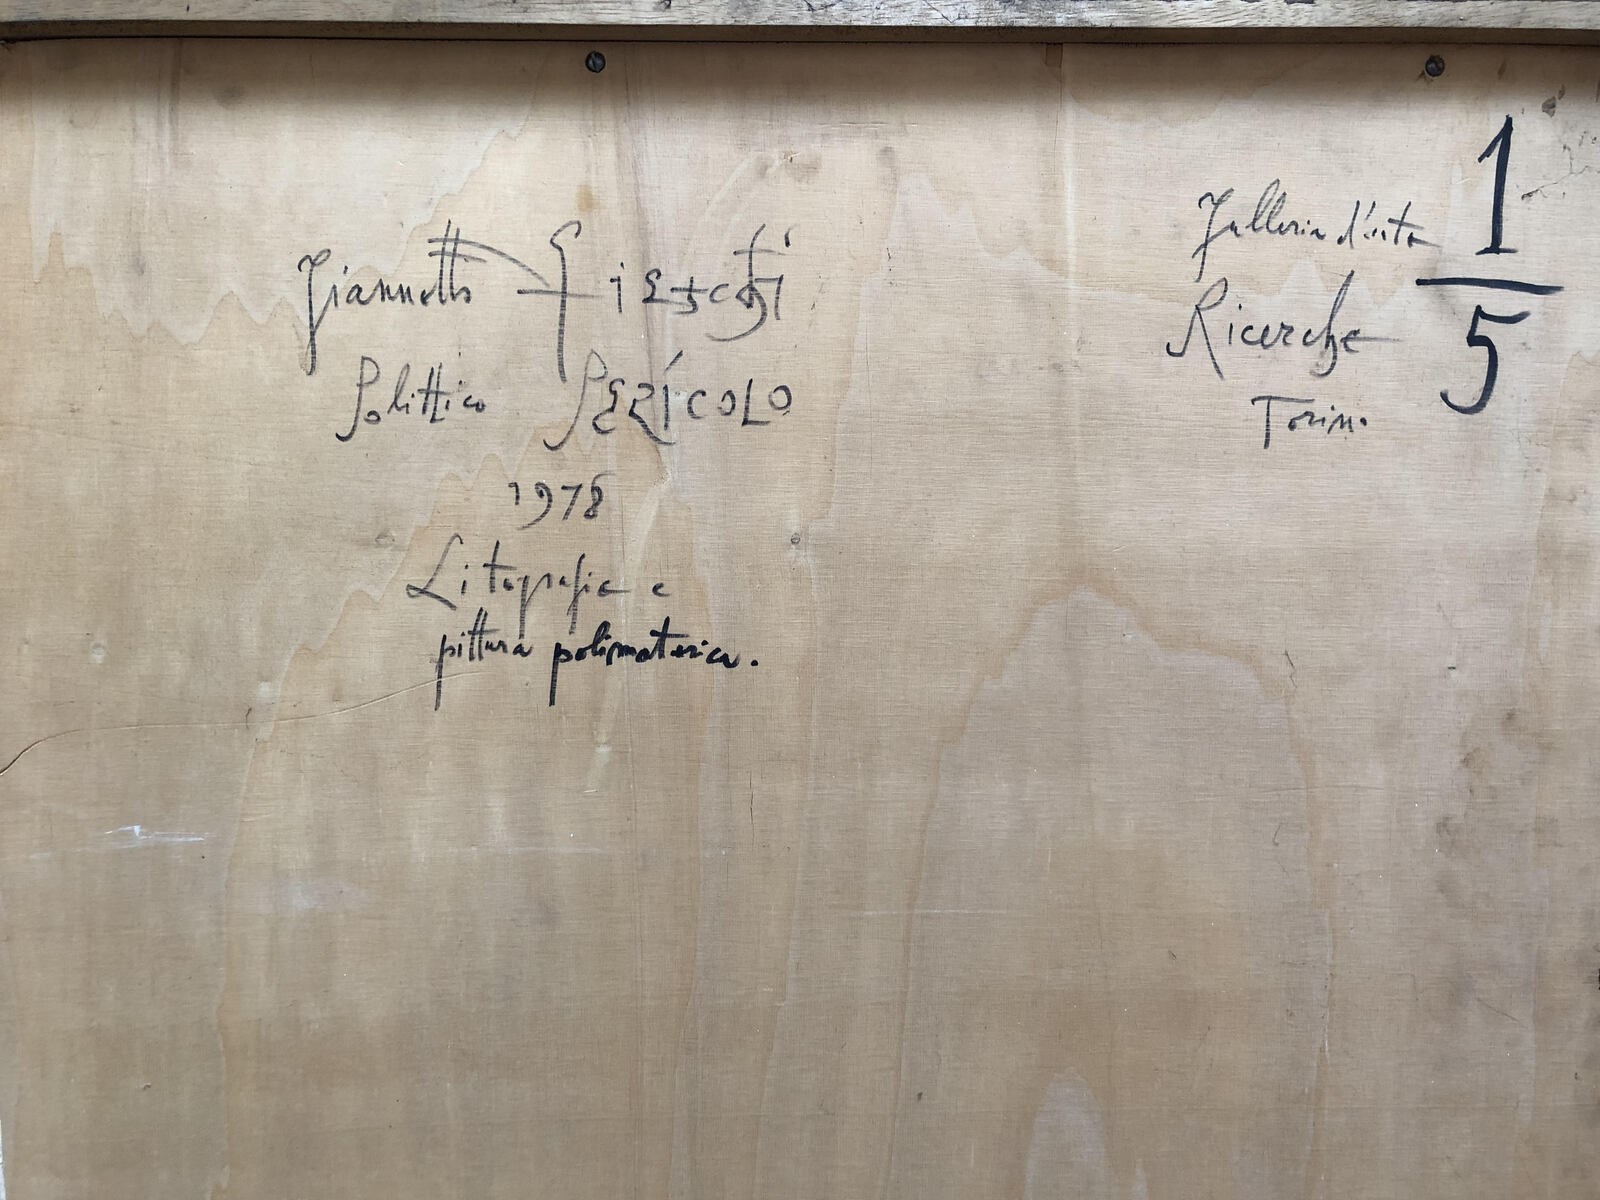 Giannetto Fieschi
Polittico PERÍCOLO
1978
Litografia e
pittura polimaterica.
Galleria d'arte
Ricerche
Torino
1
5